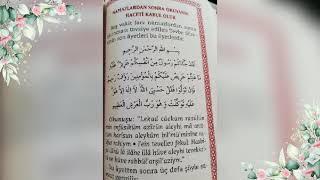 NAMAZLARDAN SONRA OKUYANIN
HACETİ KABUL OLUR
Beş vakit farz namazlardan sonra
tavsiye edilen Tevbe
son âyetleri bu âyetlerdir.
بِسْمِ اللّٰهِ الرَّحْمٰنِ الرَّحِيمِ
لَقَدْ جَاءَكُمْ رَسُولٌ مِنْ اَنْفُسِكُمْ عَزِيزٌ عَلَيْهِ
مَا عَنِتُّمْ حَرِيصٌ عَلَيْكُمْ بِالْمُؤْمِنِينَ رَؤُفٌ رَحِيمٌ
فَاِنْ تَوَلَّوْا فَقُلْ حَسْبِيَ اللّٰهُ لَا اِلٰهَ اِلَّا هُوَ
عَلَيْهِ تَوَكَّلْتُ وَهُوَ رَبُّ الْعَرْشِ الْعَظِيمِ
Okunuşu: "Lekad câekum rasûlün
min enfüsiküm azîzün aleyhi mâ
harîsun aleyküm bil'mü'minîne
rahîym • Fein tevellev fekul Hasbi-
lâ ilâhe illâ hüve aleyhi tevekkel-
ve hüve rabbül'arşil'azıym."
Bu âyetten sonra üç defa şöyle